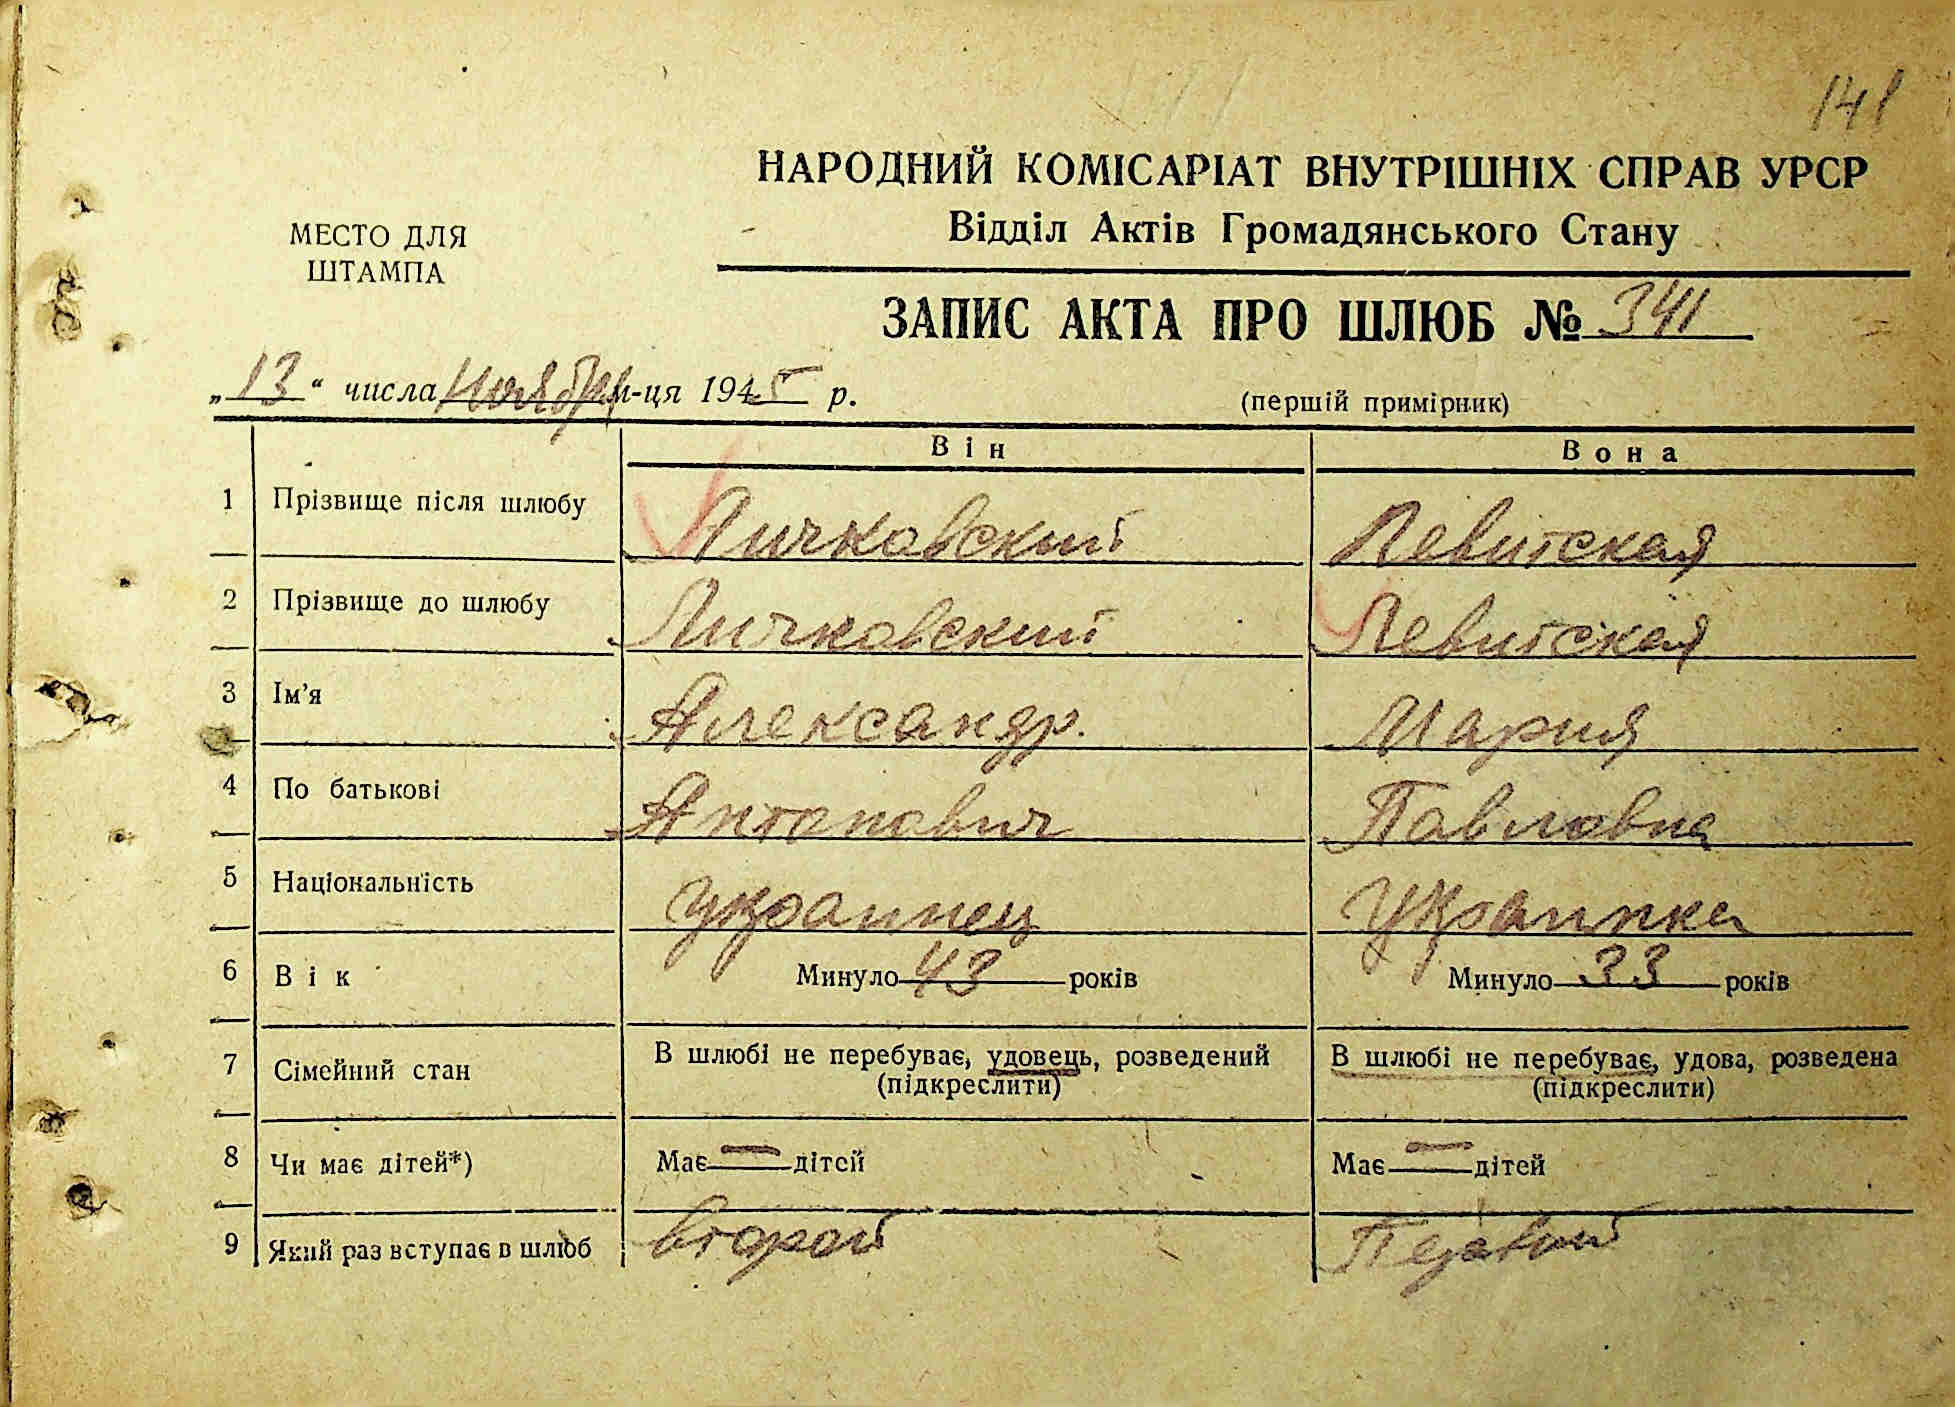 141
НАРОДНИЙ КОМІСАРІАТ ВНУТРІШНІХ СПРАВ УРСР
Відділ Актів Громадянського Стану
МЕСТО ДЛЯ
ШТАМПА
ЗАПИС АКТА ПРО ШЛЮБ № 341
„13“ числа Ноября м-ця 1945 р. (першій примірник)
Він Вона
1 Прізвище після шлюбу Личковский Левитская
2 Прізвище до шлюбу Личковский Левитская
3 Ім'я Александр. Мария
4 По батькові Антонович Павловна
5 Національність украинец Украинка
6 Вік Минуло 43 років Минуло 33 років
7 Сімейний стан В шлюбі не перебуває, удовець, розведений В шлюбі не перебуває, удова, розведена
(підкреслити) (підкреслити)
8 Чи має дітей*) Має — дітей Має — дітей
9 Який раз вступає в шлюб второй Первый